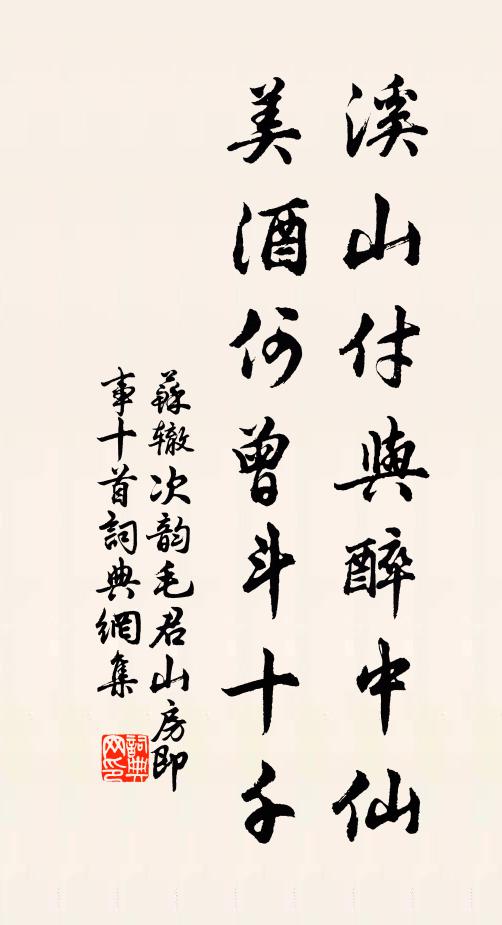 溪山付與醉中仙
美酒何曾斗十千
蘇辙次韵毛君山房即
事十首詞典網集
詞典
网印